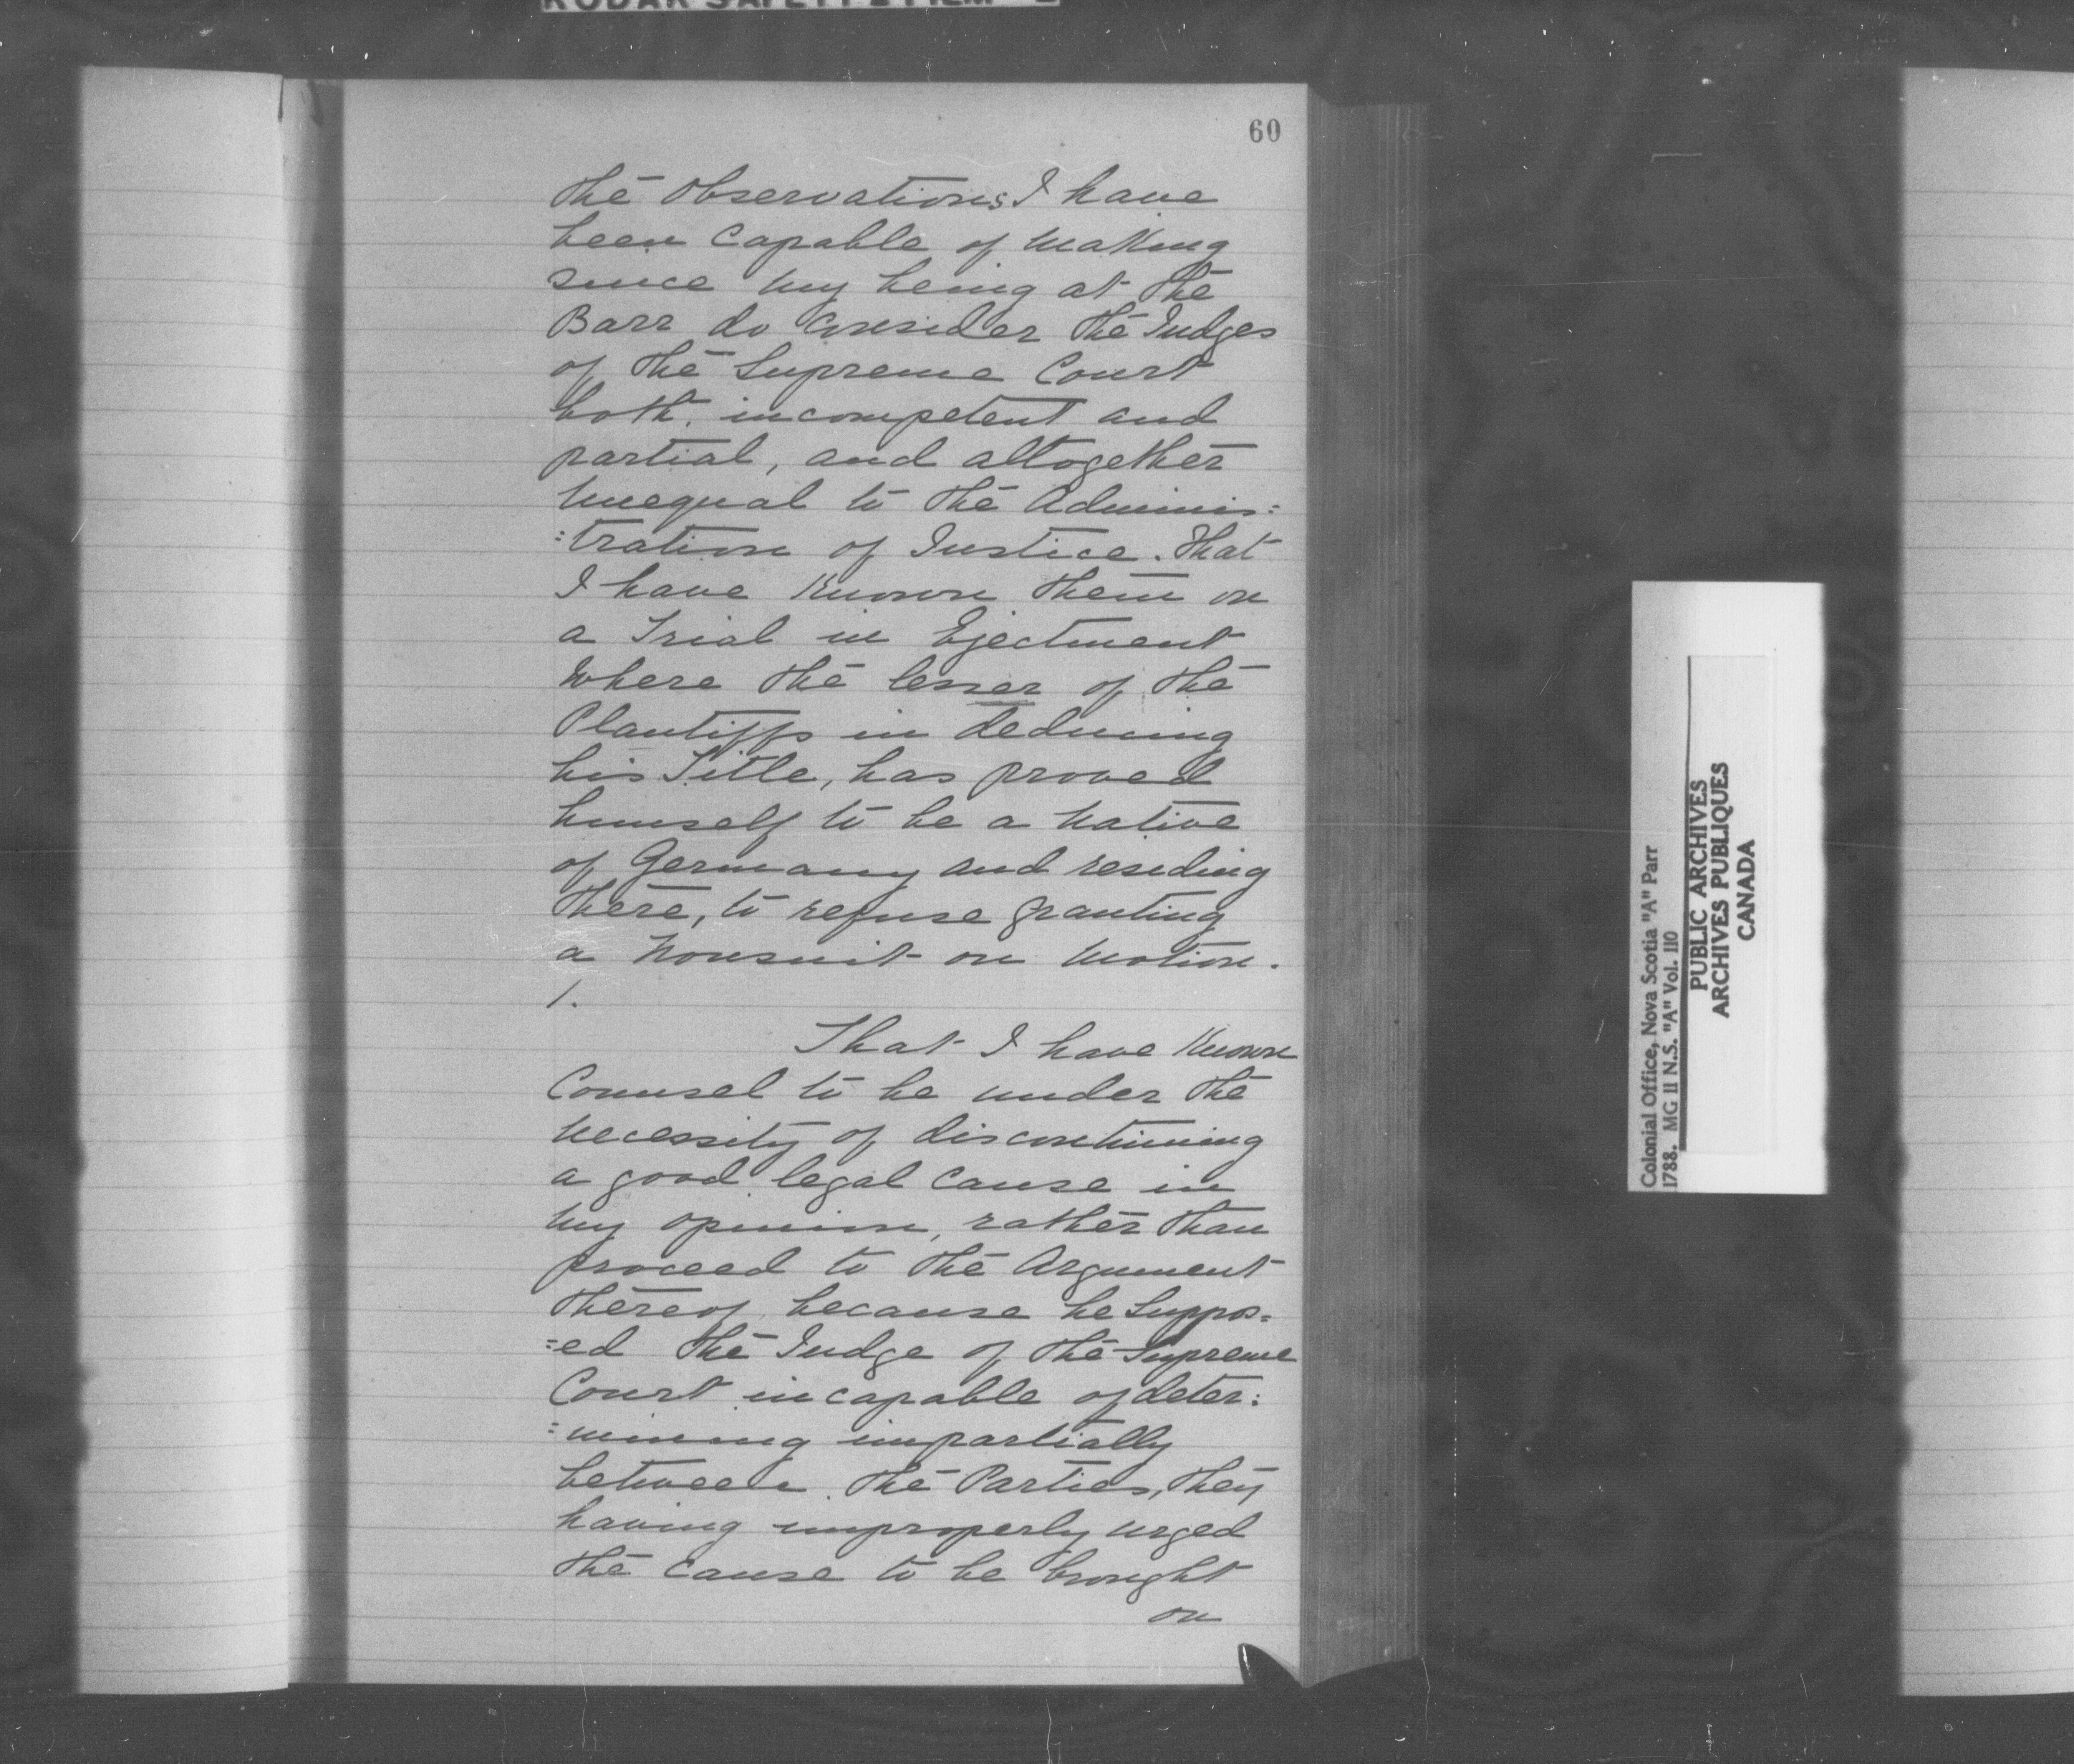 60
the Observations I have
been Capable of making
since my being at the
Barr do Consider the Judges
of the Supreme Court
both incompetent and
partial, and altogether
unequal to the Adminis:
:tration of Justice. That
I have Known them on
a Trial in Ejectment
Where the lesser of the
Plantiffs in deducing
his Title, has proved
himself to be a native
of Germany and residing
there, to refuse granting
a Nonsuit on motion.
1.
That I have Known
Counsel to be under the
necessity of discontinuing
a good legal Cause in
my opinion, rather than
proceed to the Argument
thereof because he Suppos=
=ed the Judge of the Supreme
Court incapable of deter:
:mining impartially
between the Parties, they
having improperly urged
the Cause to be brought
on
Colonial Office, Nova Scotia "A" Parr
1788. MG 11 N.S. "A" Vol. 110
PUBLIC ARCHIVES
ARCHIVES PUBLIQUES
CANADA